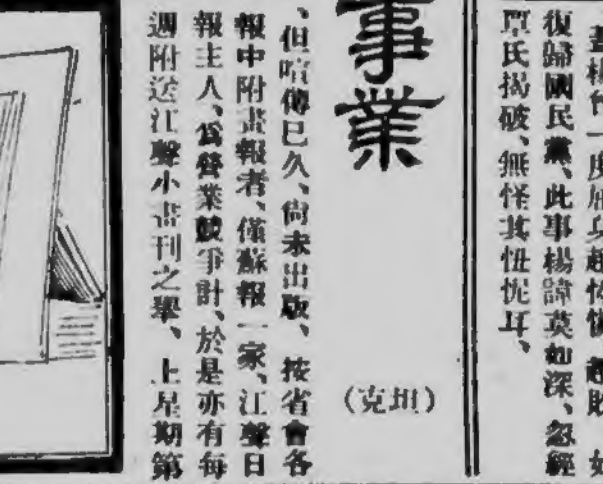 畫楊曾一度屈
復歸國民黨、此事楊諱莫如深、忽經
覃氏揭破、無怪其忸怩耳、
事業
（坦克）
、但喧傳已久、尙未出版、按省會各
報中附畫報者、僅蘇報一家、江聲日
報主人、爲營業競爭計、於是亦有每
週附送江聲小畫刊之舉、上星期第